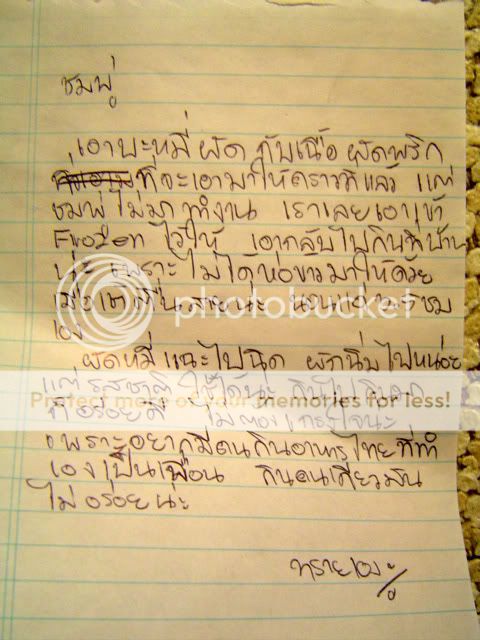 ชมพู่
เอาบะหมี่ ผัด กับเนื้อ ผัดพริก
ที่จะเอามาให้คราวที่แล้ว แต่
ชมพู่ ไม่มาทำงาน เราเลยเอาเข้า
Frozen ไว้ให้ เอากลับไปกินที่บ้าน
นะ เพราะ ไม่ได้ห่อข้าวมาให้ด้วย
photobucket
ผัดหมี่ แฉะไปนิด ผักนิ่มไปหน่อย
Protect more of your memories for less!
แต่ รสชาติ ใช้ได้นะ
ที่ อร่อยดี ไม่ต้อง เกรงใจนะ
เพราะอยากมีคนกินอาหารไทยที่ทำ
เองเป็นเพื่อน กินคนเดียวมัน
ไม่อร่อยนะ